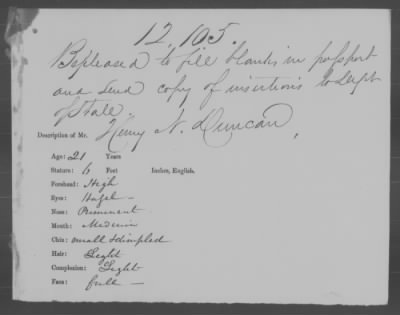 12,105.
Be pleased to fill blanks in passport
and send copy of insertions to Dept
of State
Henry N. Duncan,
Description of Mr.
Age: 21 Years
Stature: 6 Feet Inches, English.
Forehead: High
Eyes: Hazel —
Nose: Prominent
Mouth: Medium
Chin: small & dimpled
Hair: Light
Complexion: Light
Face: full —